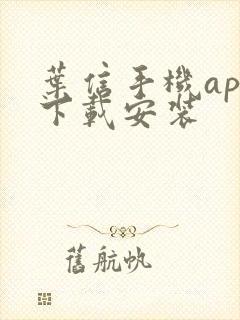 葉信手機ap
下載安裝
舊航帆